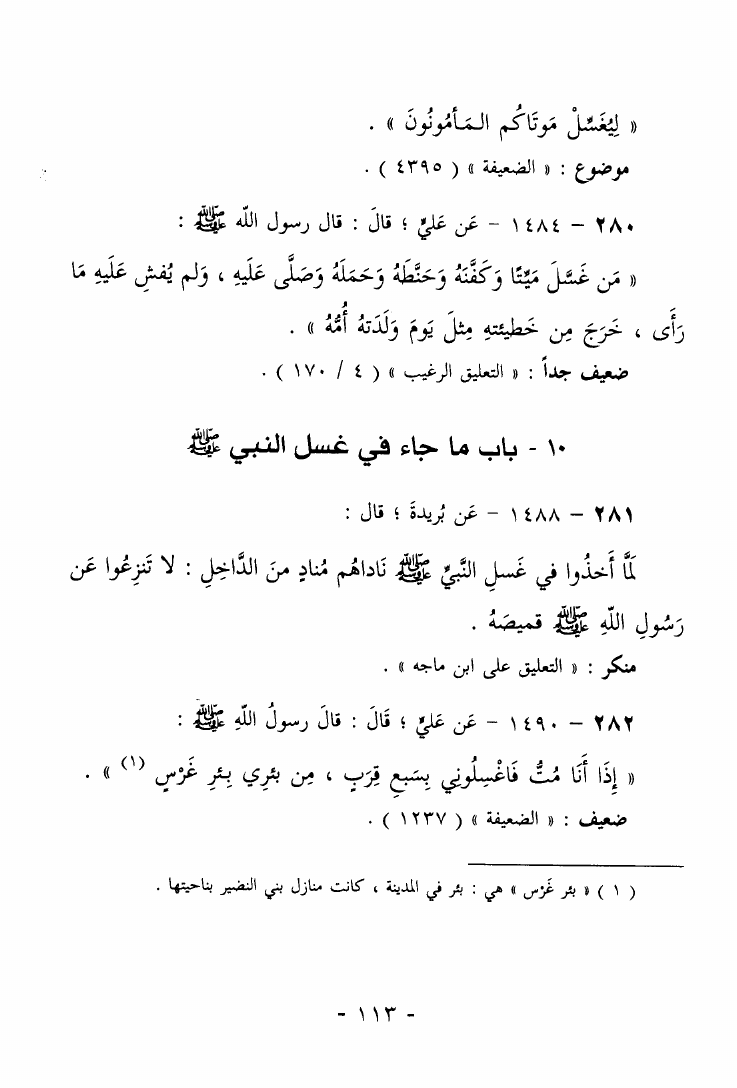 « لِيُغَسِّلْ مَوتَاكُم المَأمُونُونَ » .
موضوع : « الضعيفة » ( ٤٣٩٥ ) .
٢٨٠ – ١٤٨٤ – عَن عَليٍّ ؛ قالَ : قال رسول اللّه ﷺ :
« مَن غَسَّلَ مَيِّتًا وَكَفَّنَهُ وَحَنَّطَهُ وَحَمَلَهُ وَصَلَّى عَلَيهِ ، وَلم يُفشِ عَلَيهِ مَا
رَأَى ، خَرَجَ مِن خَطيئتهِ مِثلَ يَومَ وَلَدَتهُ أُمُّهُ » .
ضعيف جداً : « التعليق الرغيب » ( ٤ / ١٧٠ ) .
١٠ - باب ما جاء في غسل النبي ﷺ
٢٨١ – ١٤٨٨ – عَن بُريدةَ ؛ قال :
لَمَّا أَخذُوا في غَسلِ النَّبيِّ ﷺ نَاداهُم مُنادٍ منَ الدَّاخِلِ : لا تَنزِعُوا عَن
رَسُولِ اللّهِ ﷺ قميصَهُ .
منكر : « التعليق على ابن ماجه » .
٢٨٢ – ١٤٩٠ – عَن عَليٍّ ؛ قَالَ : قالَ رسولُ اللّهِ ﷺ :
« إِذَا أَنَا مُتُّ فَاغْسِلُوني بِسَبعِ قِرَبٍ ، مِن بئرِي بِئرِ غَرْسٍ (١) » .
ضعيف : « الضعيفة » ( ١٢٣٧ ) .
( ١ ) « بئر غَرْس » هي : بئر في المدينة ، كانت منازل بني النضير بناحيتها .
- ١١٣ -